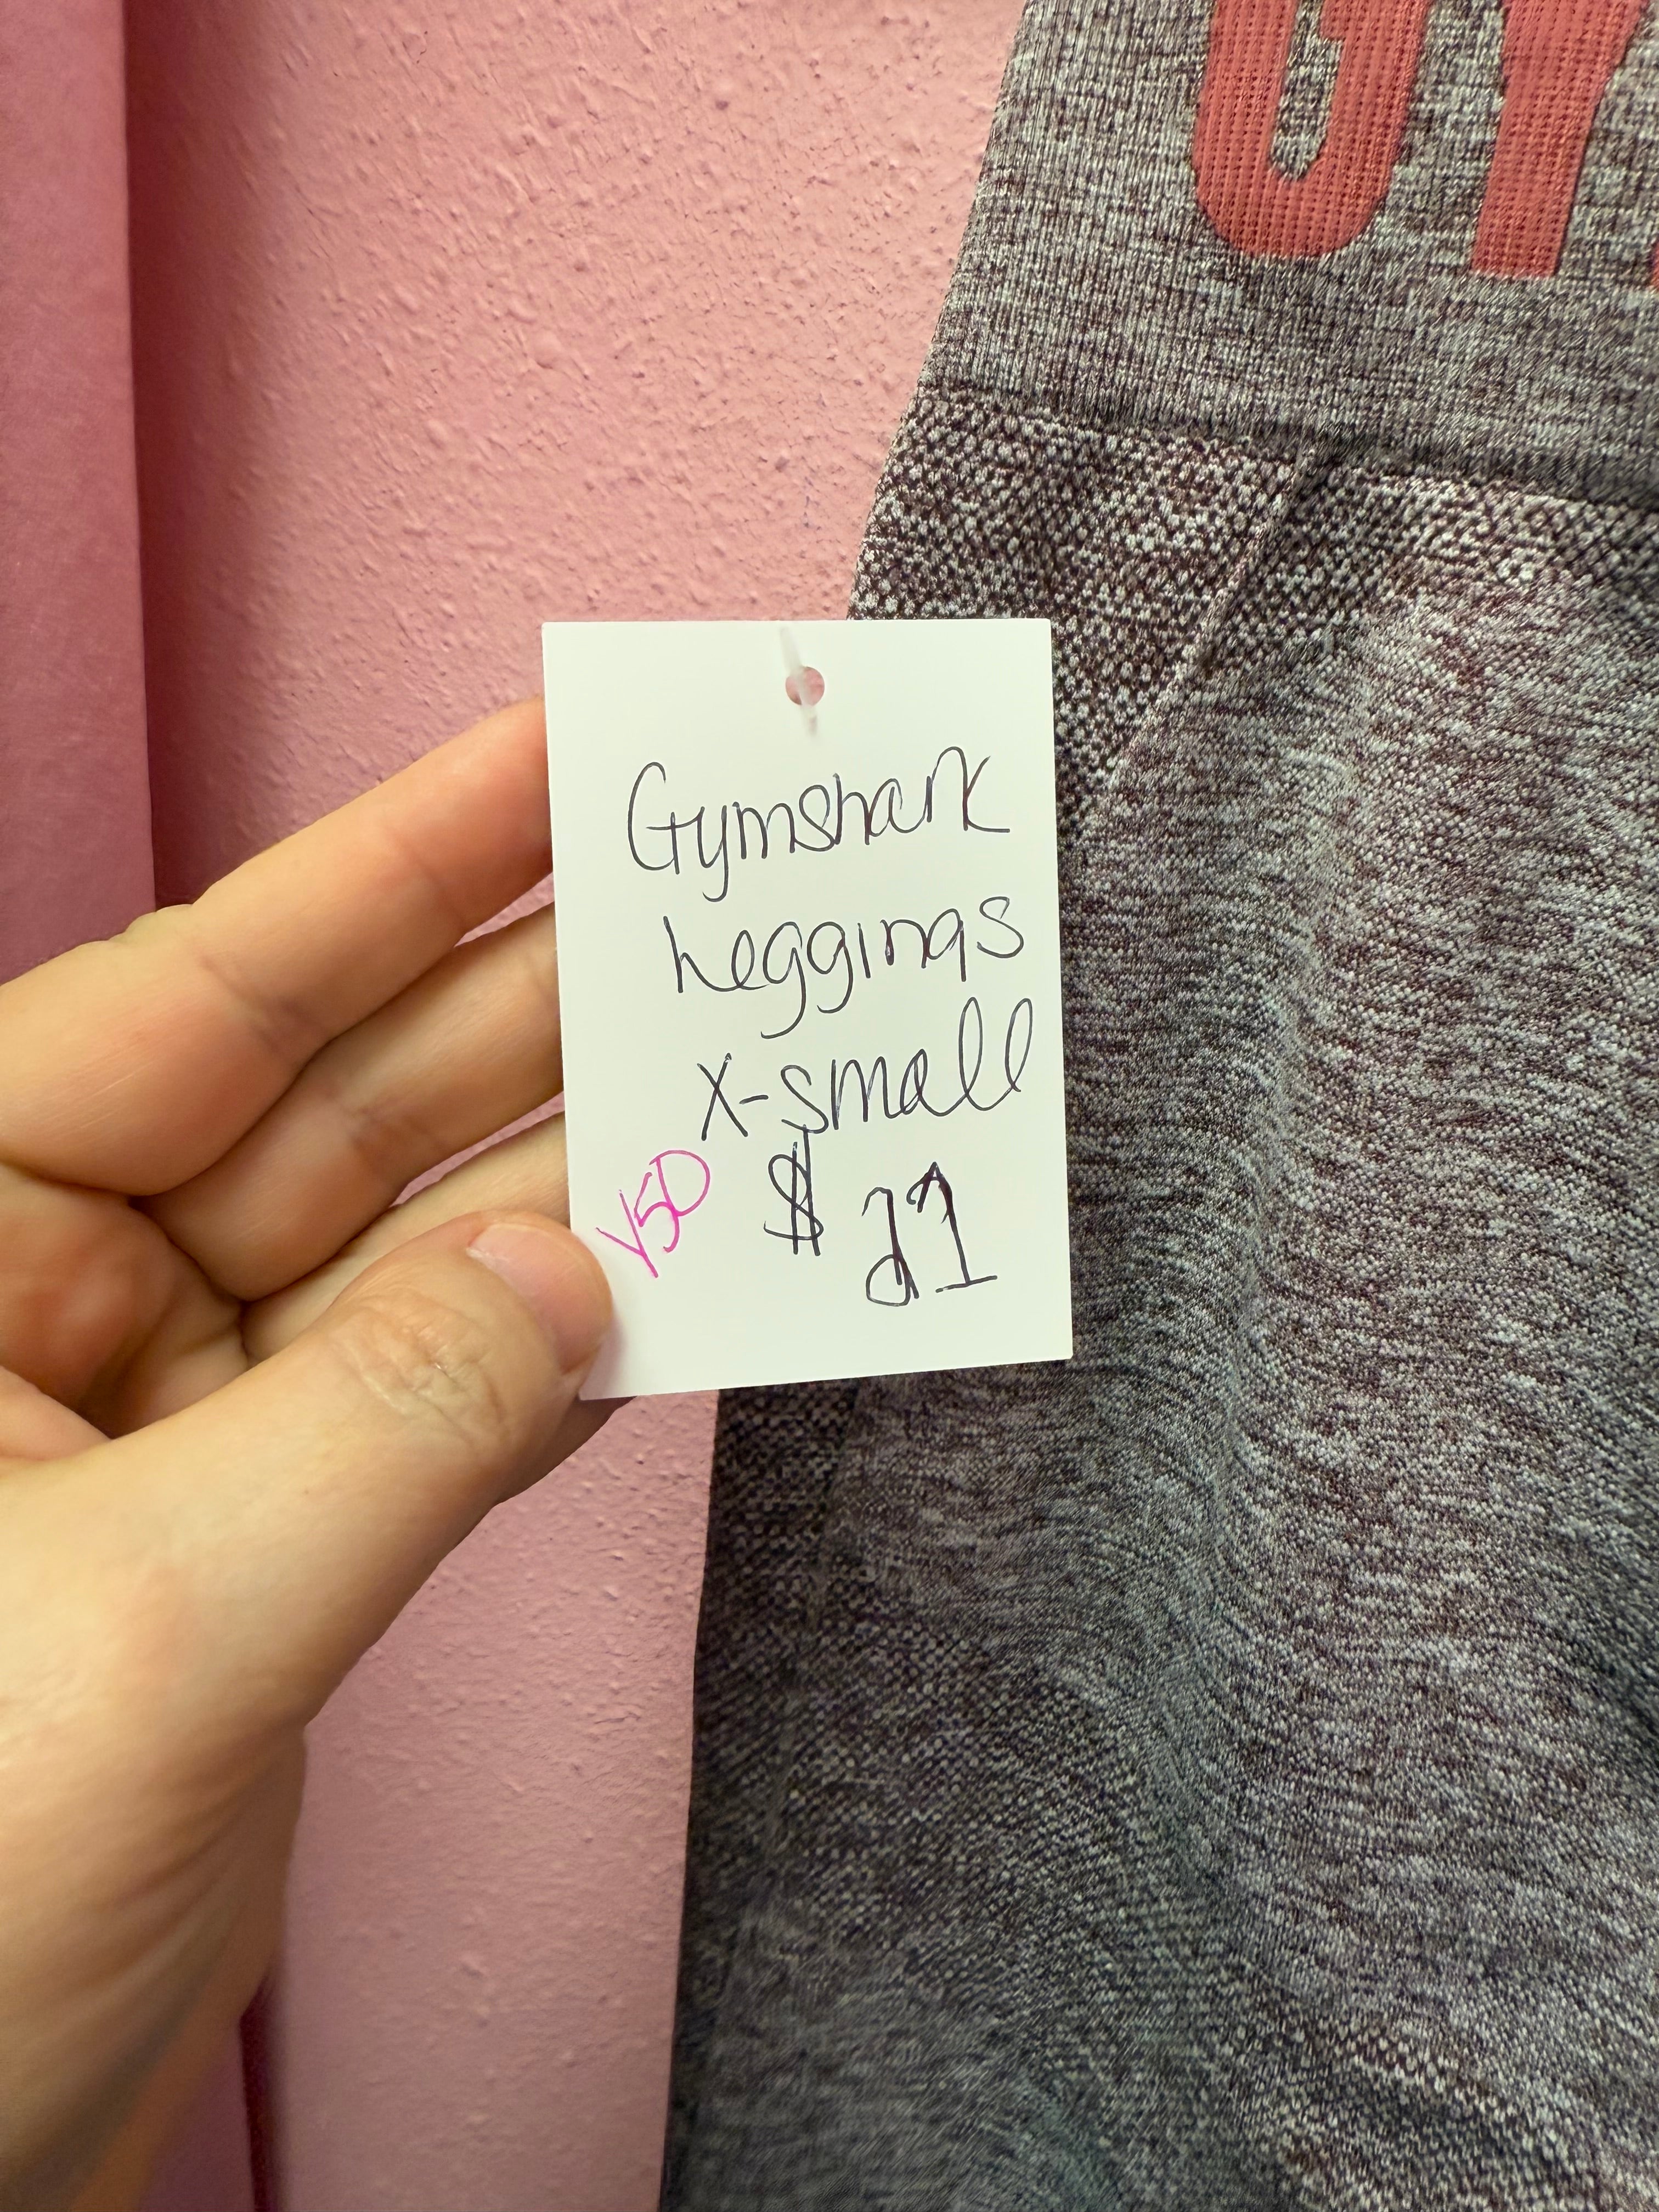 GY
Gymshark
Leggings
X-small
Y5D $ 21